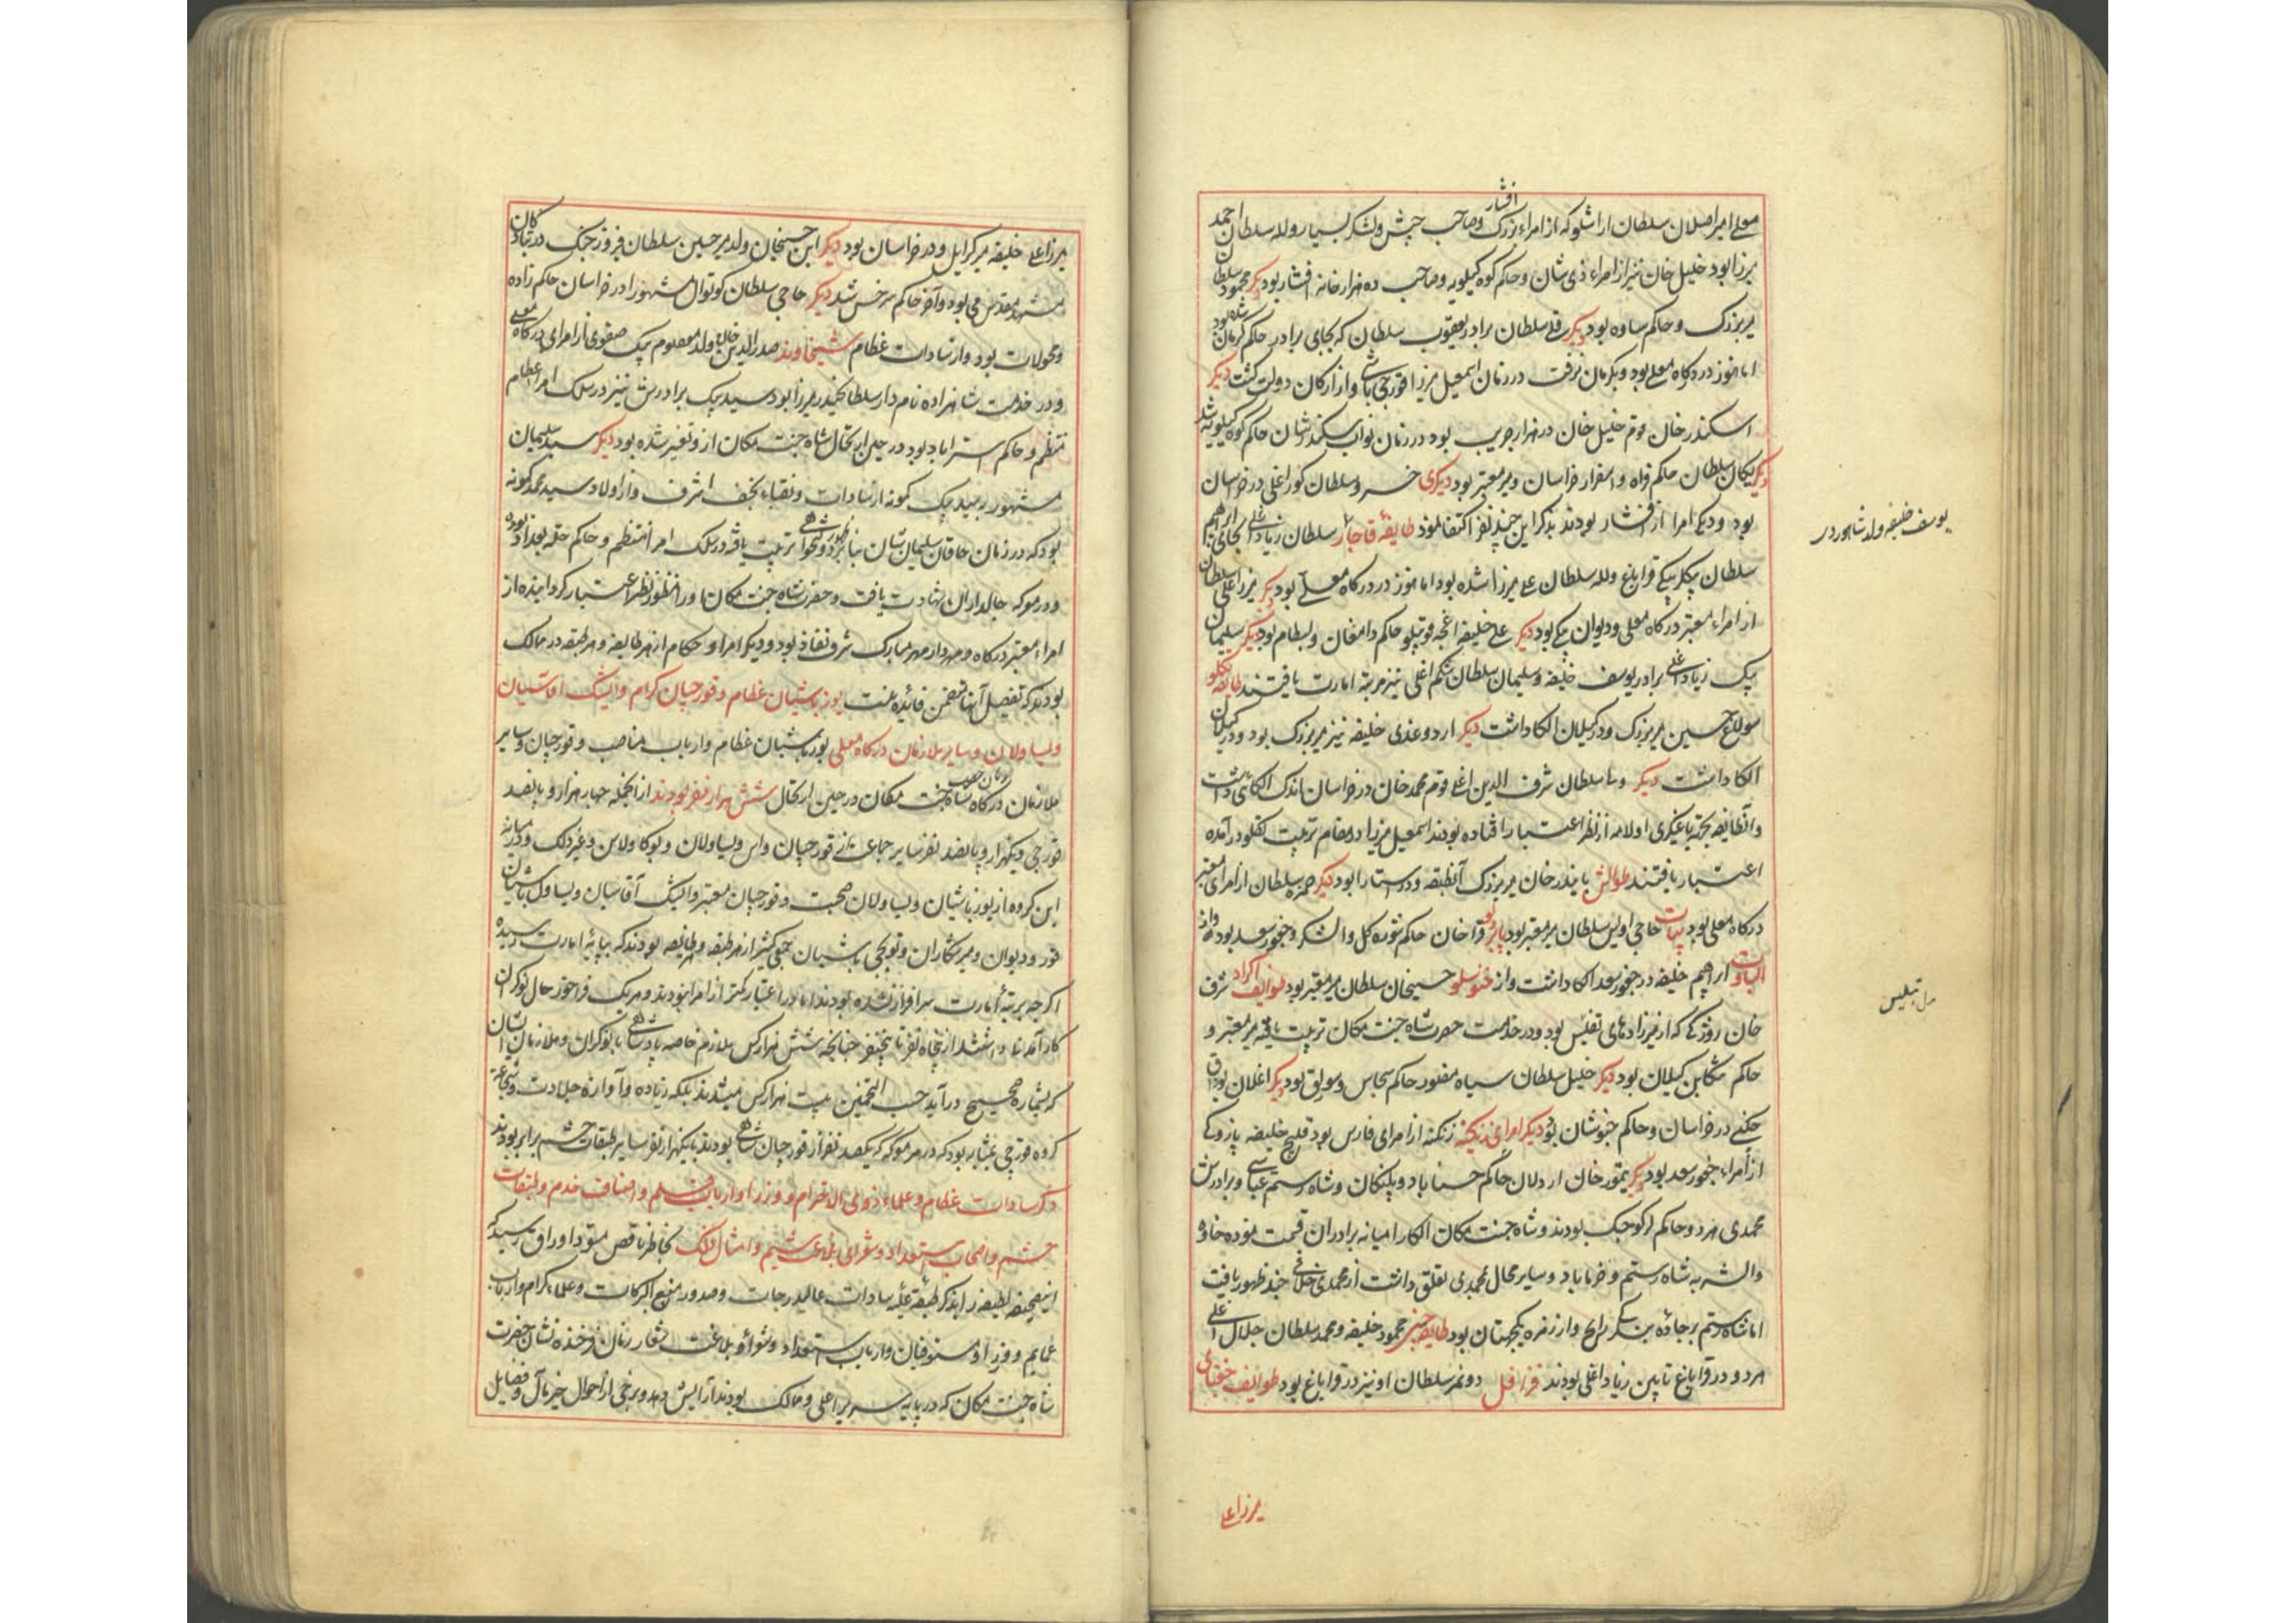 افشار
معلی امیر اصلان سلطان ارشلو که از امراء بزرک و صاحب جیش و لشکر بسیار و لله سلطان احمد
میرزا بود خلیل خان نیز از امراء ذی شان و حاکم کوه کیلویه و صاحب ده هزار خانه افشار بود دیکر محمود سلطان
میر بزرک و حاکم ساوه بود دیکر قلی سلطان برادر یعقوب سلطان که بجای برادر حاکم کرمان شده بود
اما هنوز در درکاه معلی بود و بکرمان نرفت در زمان اسمعیل میرزا قورچی باشی و از ارکان دولت کشت دیکر
اسکندر خان قوم خلیل خان در هزار جریب بود در زمان نواب سکندر شان حاکم کوه کیلویه شد
دیکر یکان سلطان حاکم فراه و اسفزار خراسان و میر معتبر بود دیکری خسرو سلطان کور اغلی در خراسان
بود و دیکر امرا از افشار بودند بذکر این چند نفر اکتفا نمود طایفهٔ قاجار سلطان زیاد اغلی بجای ابراهیم
سلطان بیکلربیکی قراباغ و لله سلطان علی میرزا شده بود اما هنوز در درکاه معلی بود دیکر میرزا علی سلطان
از امراء معتبر درکاه معلی و دیوان بیکی بود دیکر علی خلیفه اغچه قوینلو حاکم دامغان و بسطام بود دیکر سلیمان
بیک زیاد اغلی برادر یوسف خلیفه و سلیمان سلطان شکم اغلی نیز مرتبه امارت یافتند طایفه تکلو
سولاغ حسین میر بزرک و در کیلان الکا داشت دیکر اردوغدی خلیفه نیز میر بزرک بود و در کیلان
الکا داشت دیکر وسا سلطان شرف الدین اغلی قوم محمد خان در خراسان اندک الکائی داشت
و آن طایفه بجهة یاغیکری اولامه از نظر اعتبار افتاده بودند اسمعیل میرزا در مقام تربیت تکلو در آمده
اعتبار یافتند طوالش بایندر خان میر بزرک آن طبقه و در استارا بود دیکر حمزه سلطان از امرای معتبر
درکاه معلی بود بیات حاجی اویس سلطان میر معتبر بود قرا خان حاکم شوره کل و الشکر و خچور سعد بود و از
الپاوت ابراهیم خلیفه در چخور سعد الکا داشت و از خنوسلو حسینخان سلطان میر معتبر بود طوایف اکراد شرف
خان روزکی که از میرزاده‌های تفلیس بود و در خدمت حضرت شاه جنت مکان تربیت یافته میر معتبر و
حاکم تنکابن کیلان بود دیکر خلیل سلطان سیاه منصور حاکم سجاس و سورلق بود دیکر اغلان بوداق
چکنی در خراسان و حاکم خبوشان بود دیکر امرای زنکنه زنکنه از امرای فارس بود قلیچ خلیفه پازوکی
از امراء چخور سعد بود دیکر تیمور خان اردلان حاکم حسناباد و پلنکان و شاه رستم عباسی و برادرش
محمدی هر دو حاکم لر کوچک بودند و شاه جنت مکان الکا را میانه برادران قسمت نموده خاوه
و الشتر به شاه رستم و خرماباد و سایر محال بمحمدی تعلق داشت از محمدی خلافی چند ظهور یافت
اما شاه رستم بر جاده بندکی راسخ و از زمره یکجهتان بود طایفه محمود خلیفه و محمد سلطان جلال اغلی
هر دو در قراباغ تابین زیاد اغلی بودند دونمز سلطان او نیز در قراباغ بود طوایف جغتای
یوسف خلیفه ولد شاهوردی
میرزا علی
میرزا علی خلیفه میر کرایل و در خراسان بود دیکر ابن حسینخان ولد میر حسین سلطان فیروز جنک در تبادکان
مشهد مقدس می بود و آخر حاکم سرخس شد دیکر حاجی سلطان کوتوال مشهور در خراسان حاکم زاوه
و محولات بود و از سادات عظام شیخاوند صدر الدین خان ولد معصوم بیک صفوی از امرای درکاه معلی
و در خدمت شاهزاده نامدار سلطان حیدر میرزا بود سید بیک برادرش نیز در سلک امراء عظام
منتظم و حاکم استراباد بود در حین ارتحال شاه جنت مکان از و تغییر شده بود دیکر سید سلیمان
مشهور به سید بیک کمونه از سادات و نقباء نجف اشرف و از اولاد سید محمد کمونه
بود که در زمان خاقان سلیمان شان بنابر تربیت یافته در سلک امرا منتظم و حاکم حله بغداد بوده
و در معرکه چالدران شهادت یافت و حضرت شاه جنت مکان او را منظور نظر اعتبار کردانیده از
امراء معتبر درکاه و مهردار مهر مبارک شرف نفاذ بود و دیکر امرا و حکام از هر طایفه و هر طبقه در ممالک
بودند که تفصیل آنها متضمن فائده نیست یوزباشیان عظام و قورچیان کرام و ایشیک اقاسیان
و یساولان و سایر ملازمان درکاه معلی یوزباشیان عظام و ارباب مناصب و قورچیان و سایر
ملازمان درکاه شاه جنت مکان در حین ارتحال شش هزار نفر بودند از آنجمله چهار هزار و پانصد
قورچی و یکهزار و پانصد نفر سایر جماعت از قورچیان و یساولان و بوکاولان و غیر ذلک و در میانه
این کروه از یوزباشیان و یساولان صحبت و قورچیان معتبر و ایشیک آقاسیان و یساول باشیان
قور و دیوان و میر شکاران و توپچی باشیان جمعی کثیر از هر طبقه و هر طایفه بودند که بپایهٔ امارت رسیده
اکر چه بمرتبهٔ امارت سرافراز نشده بودند اما در اعتبار کمتر از امرا نبودند و هر یک فراخور حال نوکران
کارآمدنی داشتند از پنجاه نفر تا پنج نفر چنانچه شش هزار کس ملازم خاصه پادشاهی با نوکران و ملازمان ایشان
که بشماره صحیح درآید حسب التخمین بیست هزار کس میشدند بلکه زیاده و آوازه جلادت و شجاعت
کروه قورچی بمثابه بود که در هر معرکه که یکصد نفر از قورچیان شاهی بودند با یکهزار نفر سایر طبقات حشم برابر بودند
ذکر سادات عظام و علماء ذوی الاحترام و وزرا و ارباب قلم و اصناف خدم و طبقات
حشم و اصحاب استعداد و شعرای بلاغت شیم و امثال ذلک بخاطر ناقص مسود اوراق رسید که
این صحیفه لطیفه را بذکر طبقه علیه سادات عالیدرجات و صدور منبع البرکات و علماء کرام و ارباب
عمایم و وزرا و مستوفیان و ارباب استعداد و شعراء بلاغت شعار زمان فرخنده نشان حضرت
شاه جنت مکان که در پایه سریر اعلی و ممالک بودند آرایش دهد و برخی از احوال خیر مآل و فضایل